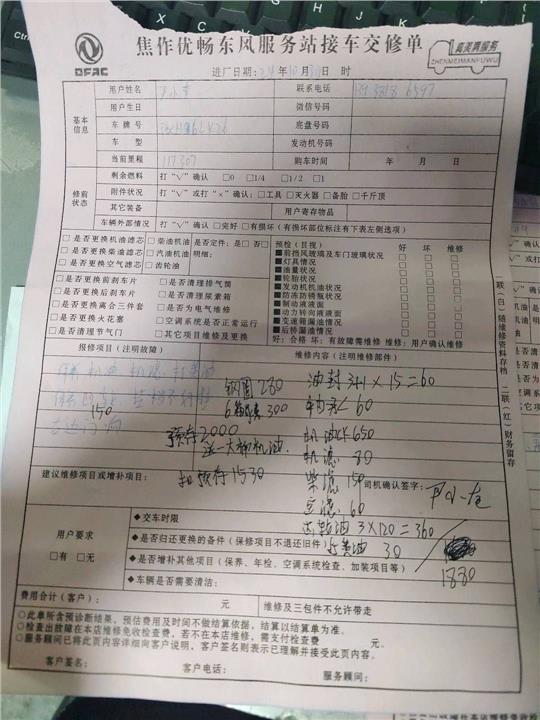 DFAC
焦作优畅东风服务站接车交修单
真美真服务
ZHENMEIZHENFUWU
进厂日期: 年 月 日 时
基本信息
用户姓名
联系电话
用户生日 微信号码
车牌号 底盘号码
车型 发动机号码
当前里程 117307 购车时间 年 月 日
修前状态
剩余燃料 打“√”确认 □0 □1/4 □1/2 □1
附件状况 打“√”或打“×”确认:□工具 □灭火器 □备胎 □千斤顶
其它装备 用户寄存物品
车辆外部情况 打“√”确认 □完好 □有损坏(有损坏部位标注有下表左侧选项)
□是否更换机油滤芯 □柴油机油 是否定件:是□ 否□
□是否更换柴油滤芯 □汽油机油 明细:
□是否更换空气滤芯 □齿轮油
□是否更换前刹车片 □是否清理排气筒
□是否更换后刹车片 □是否清理尿素箱
□是否更换离合三件套 □是否为电气维修
□是否更换火花塞 □空调系统是否正常运行
□是否清理节气门 □其它项目维修及更换
预检(目视) 好 坏 维修
■前挡风玻璃及车门玻璃状况
■灯具情况
■油量状况
■轮胎状况
■发动机机油状况
■防冻防锈瓶状况
■制动液液面
■动力转向液液面
■变速箱漏油情况
■后桥漏油情况
好:合格 坏:有故障需维修 维修:用户确认维修
报修项目(注明故障)
维修内容(注明维修部件)
150
钢圈 280
6 300
预存2000
送一大桶机油
扣预存1530
油封 3H1×15=60
60
机油 650
机滤 80
柴滤 150
空滤 60
齿轮油 3×120=360
30
1880
建议维修项目或增补项目:
司机确认签字:
用户要求
□有 □无
◆交车时限
◆是否归还更换的备件(保修项目不退还旧件)
◆是否增补其他项目(保养、年检、空调系统检查、加装项目等)
◆车辆是否需要清洁:
费用合计(客户): 元 维修及三包件不允许带走
○此单所含预诊断结果,预估费用及时间不做结算依据,结算以结算单为准。
○检查出故障在本店维修免收检查费,若不在本店维修,需支付检查费 元。
○服务顾问已将此页内容详细向客户说明,客户签名则表示已理解并接受此页内容。
客户签名: 客户电话: 服务顾问:
一联(白)链维修资料存档 二联(红)财务留存